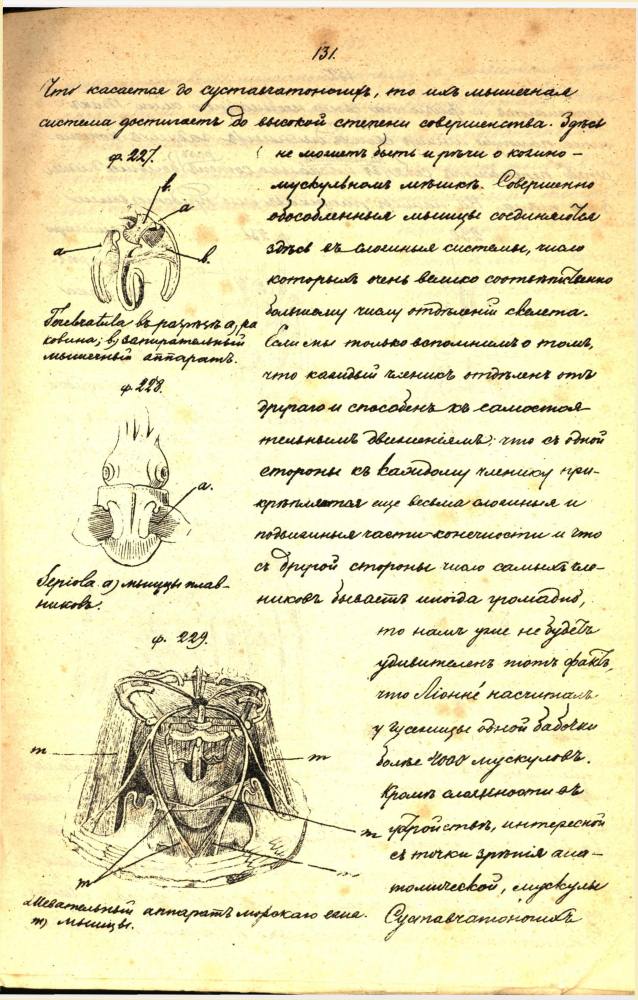 131.
Что касается до суставчатоногихъ, то ихъ мышечная
система достигаетъ до высокой степени совершенства. Здѣсь
ф. 227.
не можетъ быть и рѣчи о кожно-
мускульномъ мѣшкѣ. Совершенно
обособленныя мышцы соединяются
здѣсь въ сложныя системы, число
которыхъ очень велико соотвѣтственно
большему числу отдѣленій скелета.
b.
a
a
b.
Terebratula въ разрѣзѣ а) ра
ковина; b) запирательный
мышечный аппаратъ.
Если мы только вспомнимъ о томъ,
что каждый членикъ отдѣленъ отъ
другаго и способенъ къ самостоя-
тельнымъ движеніямъ; что съ одной
стороны къ каждому членику при-
крѣпляются еще весьма сложныя и
подвижныя части конечности и что
съ другой стороны число самыхъ чле-
никовъ бываетъ иногда громадно,
ф. 228.
a.
Sepiola а) мышцы плав-
никовъ.
то намъ уже не будетъ
удивителенъ тотъ фактъ,
что Ліонне́ насчиталъ
у гусеницы одной бабочки
болѣе 4000 мускуловъ.
Кромѣ сложности въ
устройствѣ, интересной
съ точки зрѣнія ана-
томической, мускулы
Суставчатоногихъ
ф. 229.
m
m
m
m
m
Жевательный аппаратъ морскаго ежа.
m) мышцы.